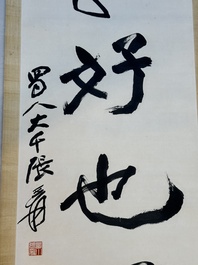 好也
蜀人大千張爰